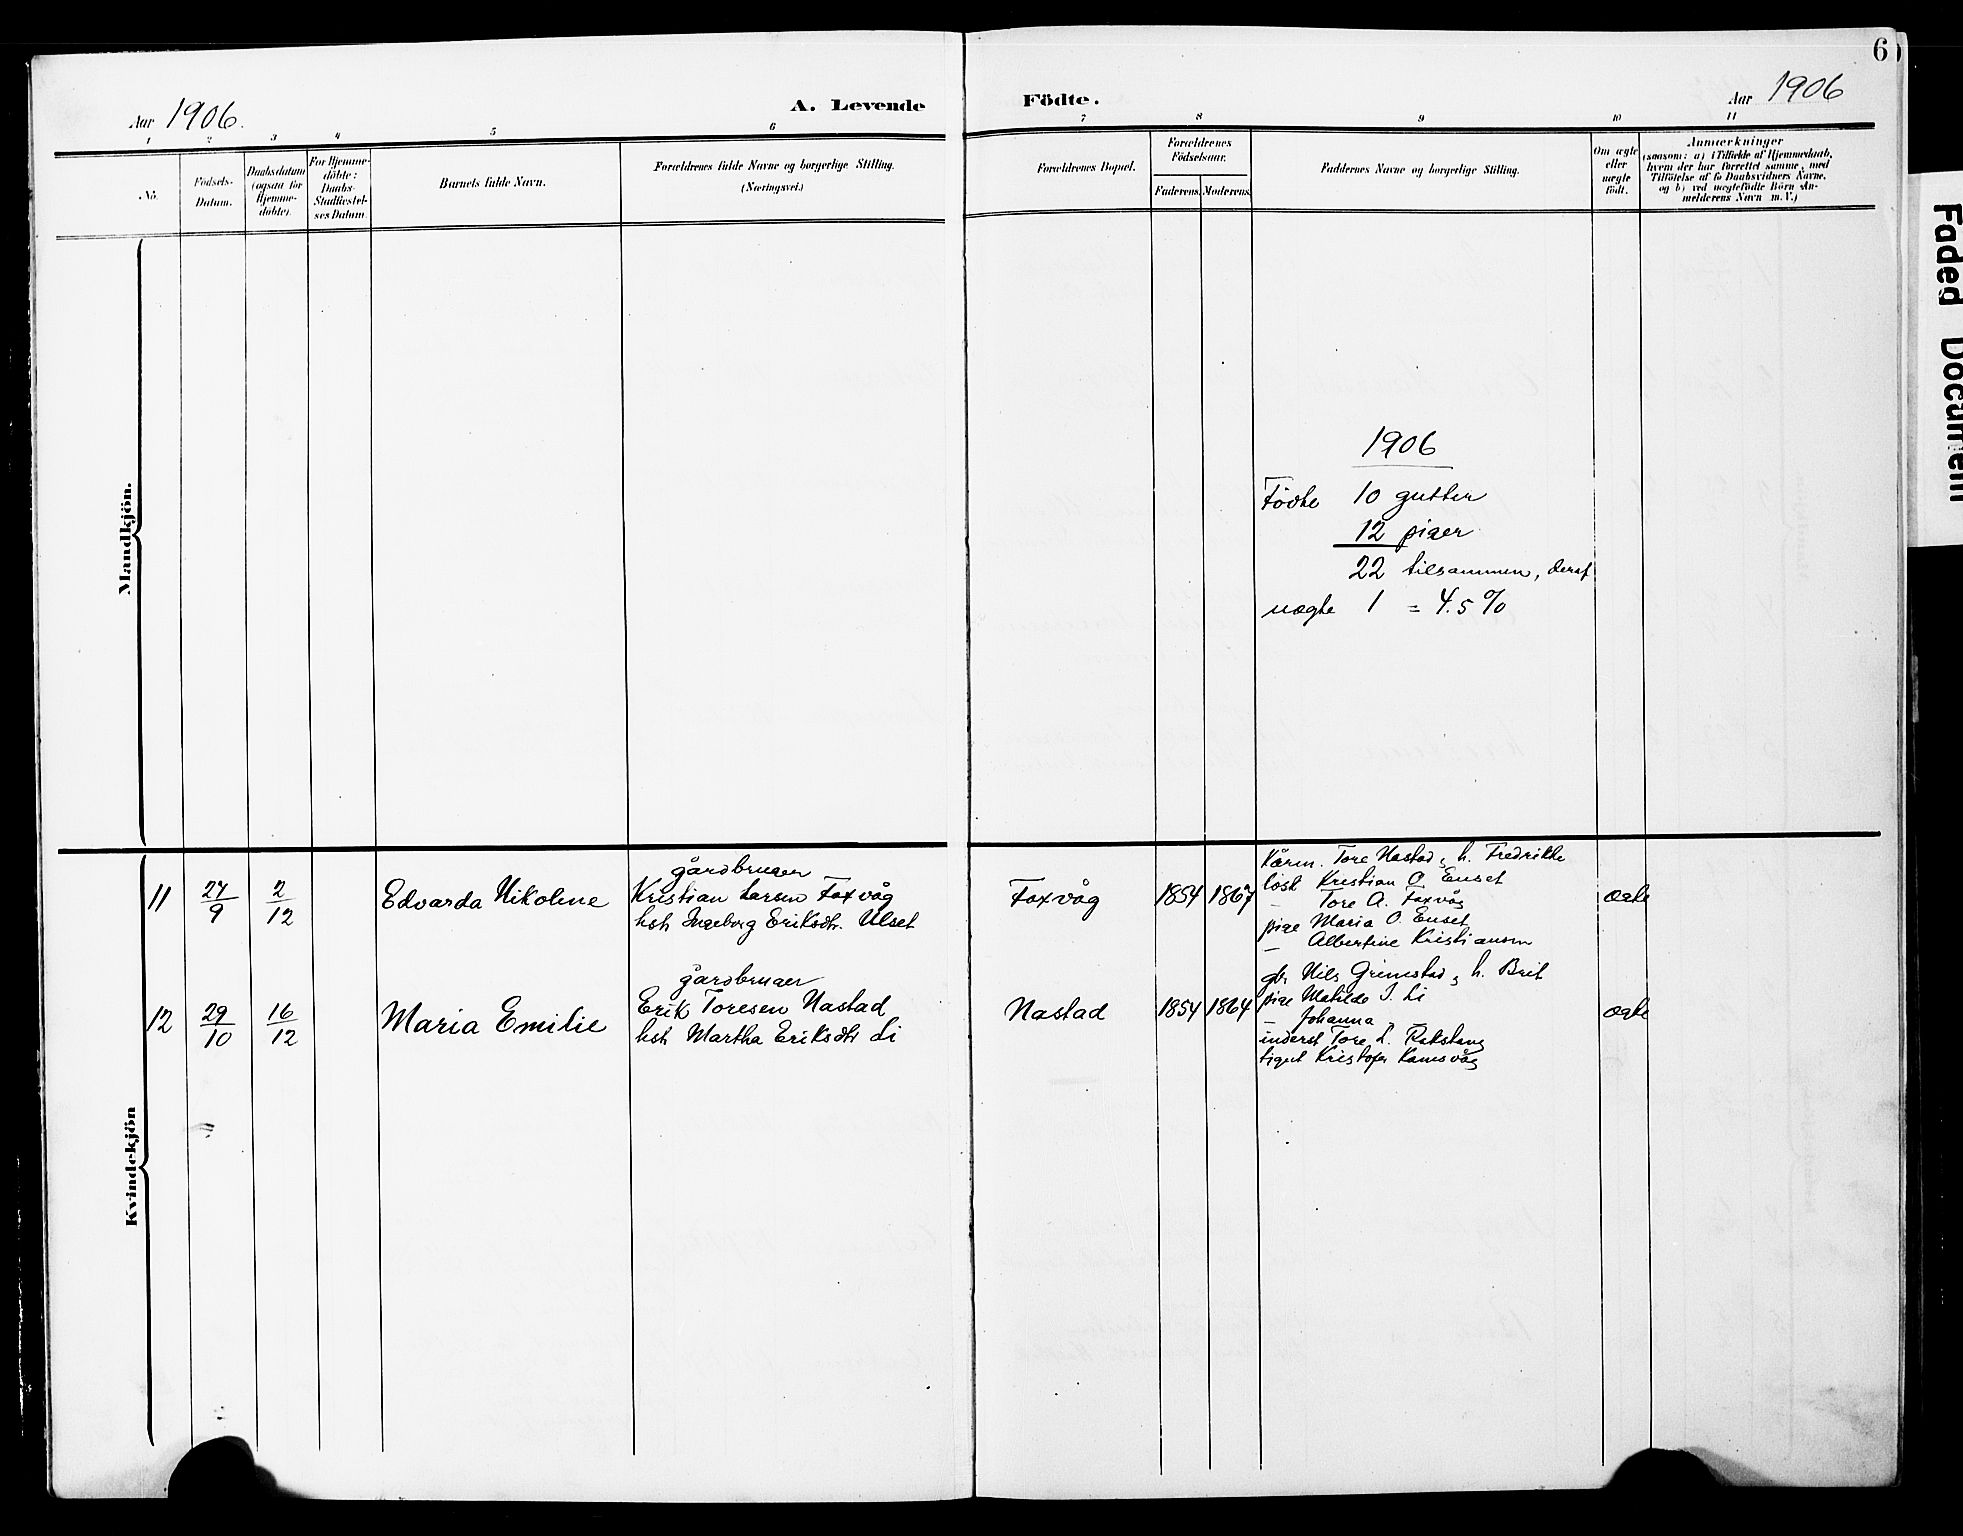 6
Aar 1906.
A. Levende
Födte.
Aar 1906
1 2 3 4 5 6 7 8 9 10 11
No.
Födsels-
Datum.
Daabsdatum
(ogsaa for
Hjemme-
döbte).
For Hjemme-
döbte:
Daabs-
Stadfæstel-
ses Datum
Barnets fulde Navn.
Forældrenes fulde Navne og borgerlige Stilling.
(Næringsvei.)
Forældrenes Bopæl.
Forældrenes
Födselsaar.
Faderens. Moderens.
Faddernes Navne og borgerlige Stilling.
Om ægte
eller
uægte
födt.
Anmærkninger
(saasom: a) i Tilfælde af Hjemmedaab,
hvem der har forrettet samme, med
Tilföielse af to Daabsvidners Navne,
og b) ved uægtefödte Börn An-
melderens Navn m. V.)
Mandkjön.
1906
Fødte 10 gutter
12 piger
22 tilsammen, deraf
uægte 1 = 4.5 %
Kvindekjön
11
27/9
2/12
Edvarda Nikoline
gårdbruger
Kristian Larsen Foxvåg
hst Ingeborg Eriksdtr. Ulset
Foxvåg
1854 1867
Kårm. Tore Nastad, h. Fredrikke
løsk Kristian O. Enset
– Tore A. Foxvåg
pige Maria O. Enset
– Albertine Kristiansen
ægte
12
29/10
16/12
Maria Emilie
gårdbruger
Erik Toresen Nastad
hst Martha Eriksdtr Li
Nastad
1854 1864
gbr Nils Grimstad, h. Brit
pige Matilde J. Li
– Johanna –
inderst Tore L. Rakstang
Kristofer Kamsvåg
ægte
Faded Document